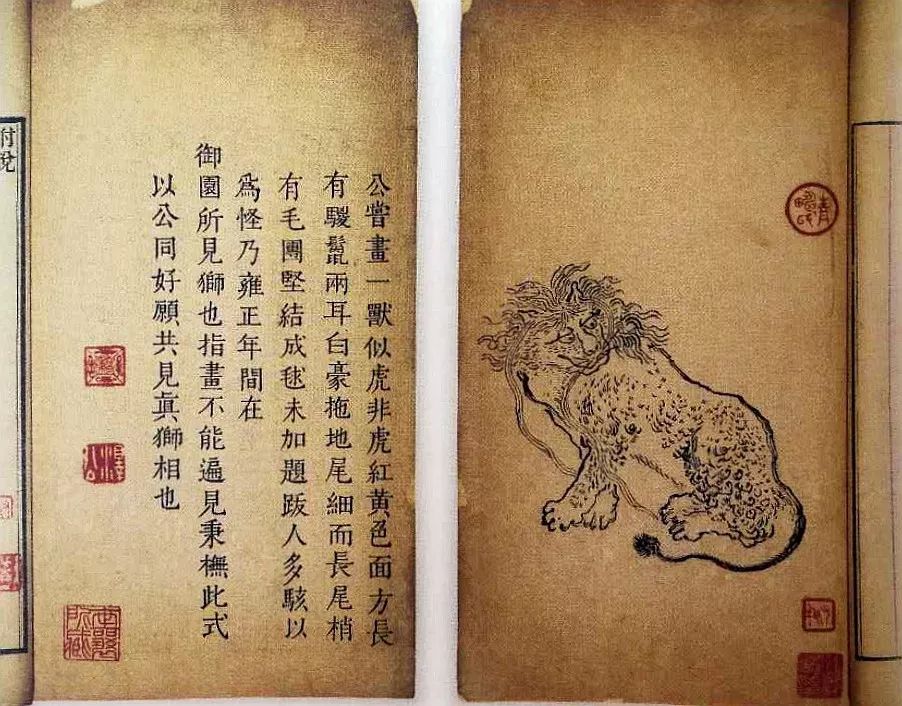 公嘗畫一獸似虎非虎紅黃色面方長
有騣鬣兩耳白豪拖地尾細而長尾梢
有毛團堅結成毬未加題跋人多駭以
爲怪乃雍正年間在
御園所見獅也指畫不能遍見秉橅此式
以公同好願共見眞獅相也
附說